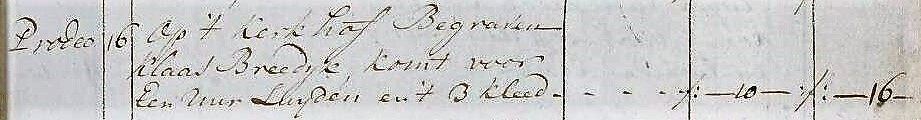 Prodeo 16 Op 't Kerkhof Begraven
Klaas Breedyk, komt voor
Een Uur Luyden en 't 3 kleed - - - - f: — 10 — f: — 16 —